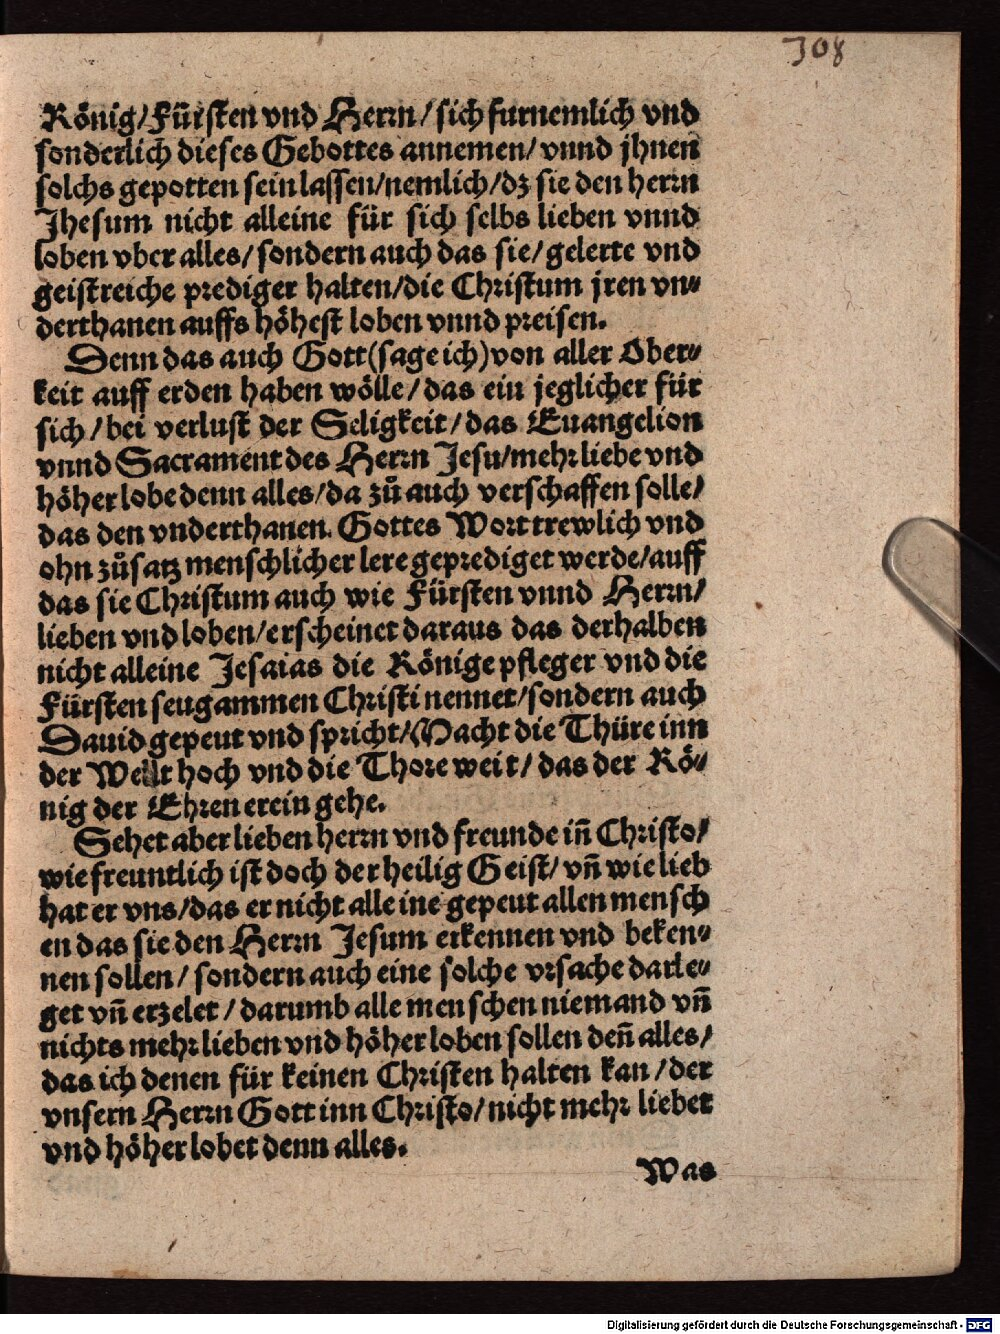 308
König/Fürsten vnd Herrn/sich furnemlich vnd
sonderlich dieses Gebottes annemen/vnnd jhnen
solchs gepotten sein lassen/nemlich/dz sie den herrn
Jhesum nicht alleine für sich selbs lieben vnnd
loben vber alles/sondern auch das sie/gelerte vnd
geistreiche prediger halten/die Christum jren vn⸗
derthanen auffs höhest loben vnnd preisen.
Denn das auch Gott(sage ich)von aller Ober⸗
keit auff erden haben wölle/das ein jeglicher für
sich/bei verlust der Seligkeit/das Euangelion
vnnd Sacrament des Herrn Jesu/mehr liebe vnd
höher lobe denn alles/da zů auch verschaffen solle/
das den vnderthanen. Gottes Wort trewlich vnd
ohn zůsatz menschlicher lere geprediget werde/auff
das sie Christum auch wie Fürsten vnnd Herrn/
lieben vnd loben/erscheinet daraus das derhalben
nicht alleine Jesaias die Könige pfleger vnd die
Fürsten seugammen Christi nennet/sondern auch
Dauid gepeut vnd spricht/Macht die Thüre inn
der Welt hoch vnd die Thore weit/das der Kö⸗
nig der Ehren erein gehe.
Sehet aber lieben herrn vnd freunde iñ Christo/
wie freuntlich ist doch der heilig Geist/vñ wie lieb
hat er vns/das er nicht alle ine gepeut allen mensch
en das sie den Herrn Jesum erkennen vnd beken⸗
nen sollen/sondern auch eine solche vrsache darle⸗
get vñ erzelet/darumb alle menschen niemand vñ
nichts mehr lieben vnd höher loben sollen deñ alles/
das ich denen für keinen Christen halten kan/der
vnsern Herrn Gott inn Christo/nicht mehr liebet
vnd höher lobet denn alles.
Was
Digitalisierung gefördert durch die Deutsche Forschungsgemeinschaft - DFG